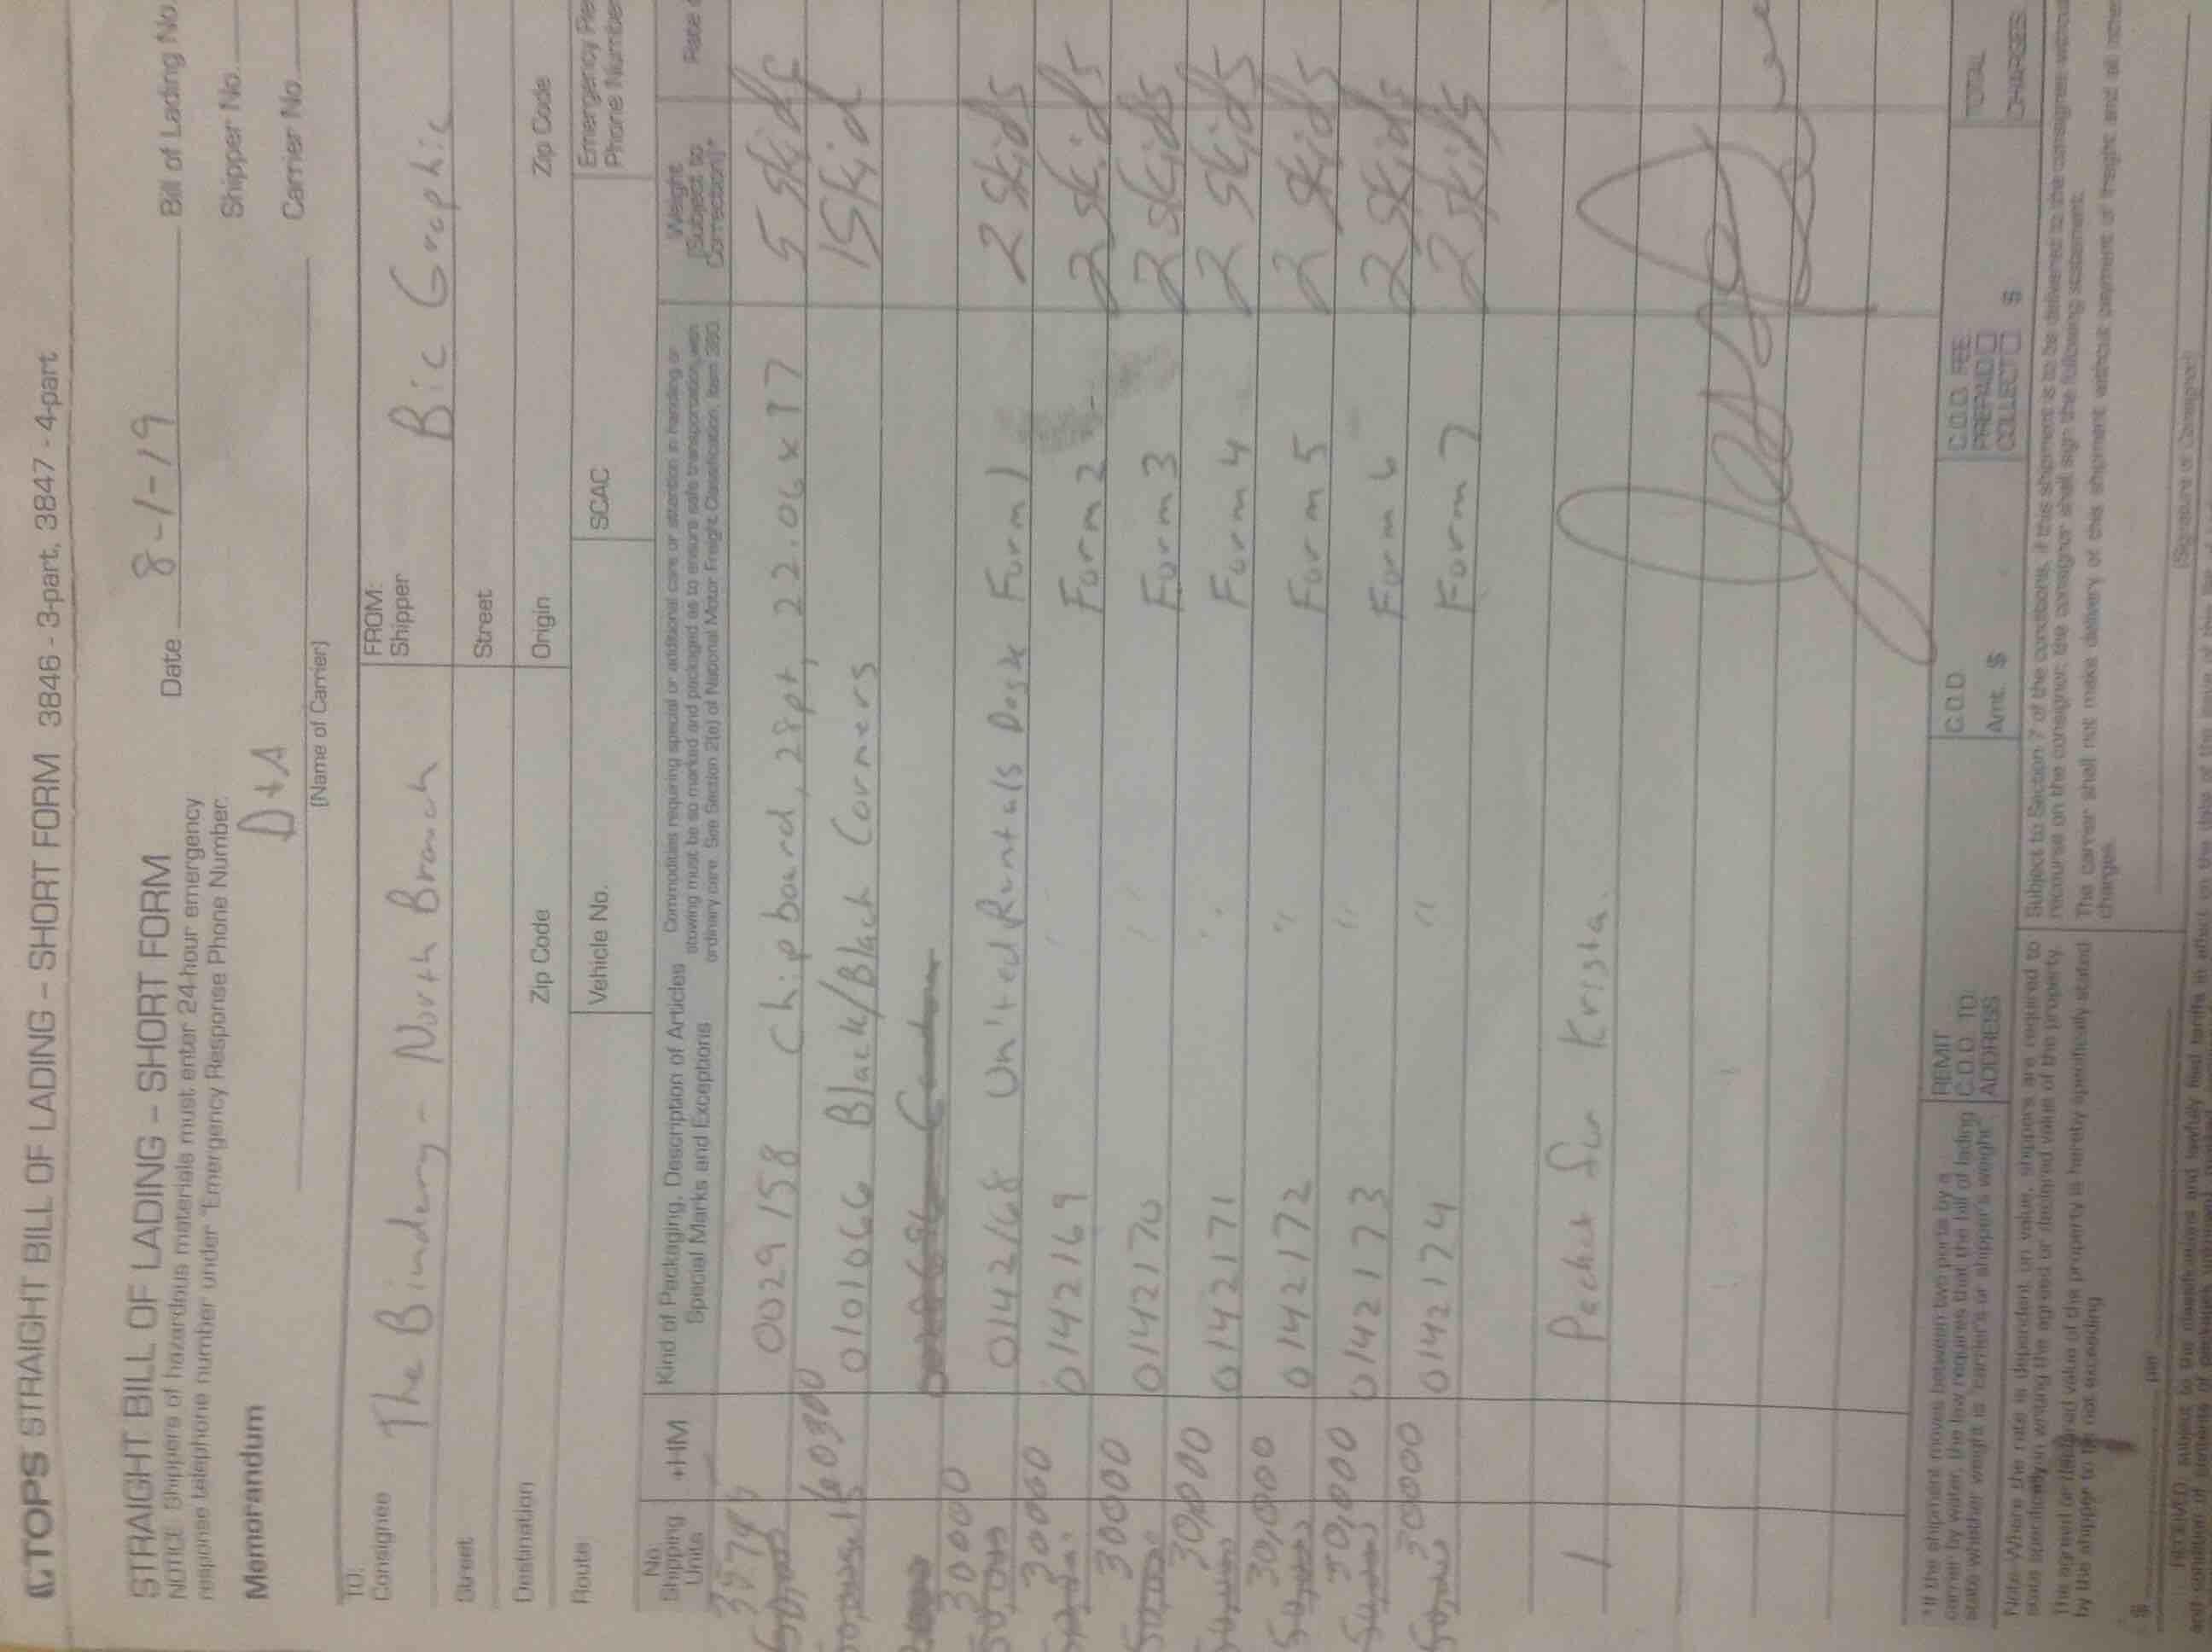 TOPS STRAIGHT BILL OF LADING – SHORT FORM 3846 - 3-part, 3847 - 4-part
STRAIGHT BILL OF LADING – SHORT FORM
NOTICE: Shippers of hazardous materials must enter 24-hour emergency
response telephone number under "Emergency Response Phone Number.
Date 8-1-19
Bill of Lading No.
Shipper No.
Carrier No.
Memorandum
D+A
(Name of Carrier)
TO:
Consignee The Bindery - North Branch
FROM:
Shipper Bic Graphic
Street
Street
Destination Zip Code
Origin Zip Code
Route
Vehicle No.
SCAC
Emergency
Phone Number
No. Shipping Units
+HM
Kind of Packaging, Description of Articles
Special Marks and Exceptions
Commodities requiring special or additional care or attention in handling or
stowing must be so marked and packaged as to ensure safe transportation with
ordinary care. See Section 2(e) of National Motor Freight Classification, Item 360
Weight
(Subject to
Correction)*
Rate
0029158 Chipboard, 28pt, 22.06 x 17 5 skids
0101066 Black/Black Corners 1 Skid
30000 0142168 United Rentals Desk Form 1 2 Skids
30000 0142169 Form 2 2 skids
30000 0142170 Form 3 2 skids
30,000 0142171 Form 4 2 skids
30,000 0142172 " Form 5 2 skids
30,000 0142173 " Form 6 2 skids
30000 0142174 " Form 7 2 skids
1 Packet for Krista.
*If the shipment moves between two ports by a
carrier by water, the law requires that the bill of lading
state whether weight is "carrier's or shipper's weight."
REMIT
C.O.D. TO:
ADDRESS
C.O.D.
Amt. $
C.O.D. FEE
PREPAID
COLLECT $
TOTAL
CHARGES
Note-Where the rate is dependent on value, shippers are required to
state specifically in writing the agreed or declared value of the property.
The agreed or declared value of the property is hereby specifically stated
by the shipper to be not exceeding
$ per
Subject to Section 7 of the conditions, if this shipment is to be delivered to the consignee without
recourse on the consignor, the consignor shall sign the following statement:
The carrier shall not make delivery of this shipment without payment of freight and all other
charges.
(Signature of Consignor)
RECEIVED, subject to the classifications and lawfully filed tariffs in effect on the date of the issue of this